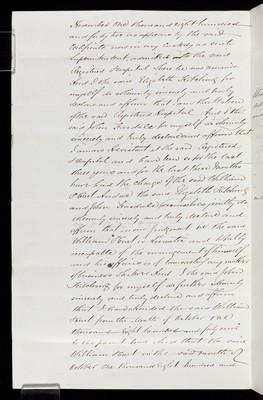 November One thousand eight hundred
and forty two as appears by the said
Certificate now in my custody as such
Superintendent, admitted into the said
Hospital where he now remains
And I the said Elizabeth Kitching for
myself do solemnly sincerely and truly
declare and affirm that I am the Matron
of the said Hospital And I the
said John for myself do solemnly
sincerely and truly declare and affirm that
I am an Assistant at the said
Hospital and have been so for the last
three years and for the last three Months
have had the charge of the said William
And we the said Elizabeth Kitching
and John for ourselves jointly do
solemnly sincerely and truly declare and
affirm that in our judgment he the said
William is Lunatic and totally
incapable of the management of himself
and his affairs or of transacting any matter
of business whatever And I the said John
Kitching for myself do further solemnly
sincerely and truly declare and affirm
that I have attended the said William
from the Month of October one
thousand eight hundred and forty
to the present time And that the said
William in the said month of
October One thousand eight hundred and